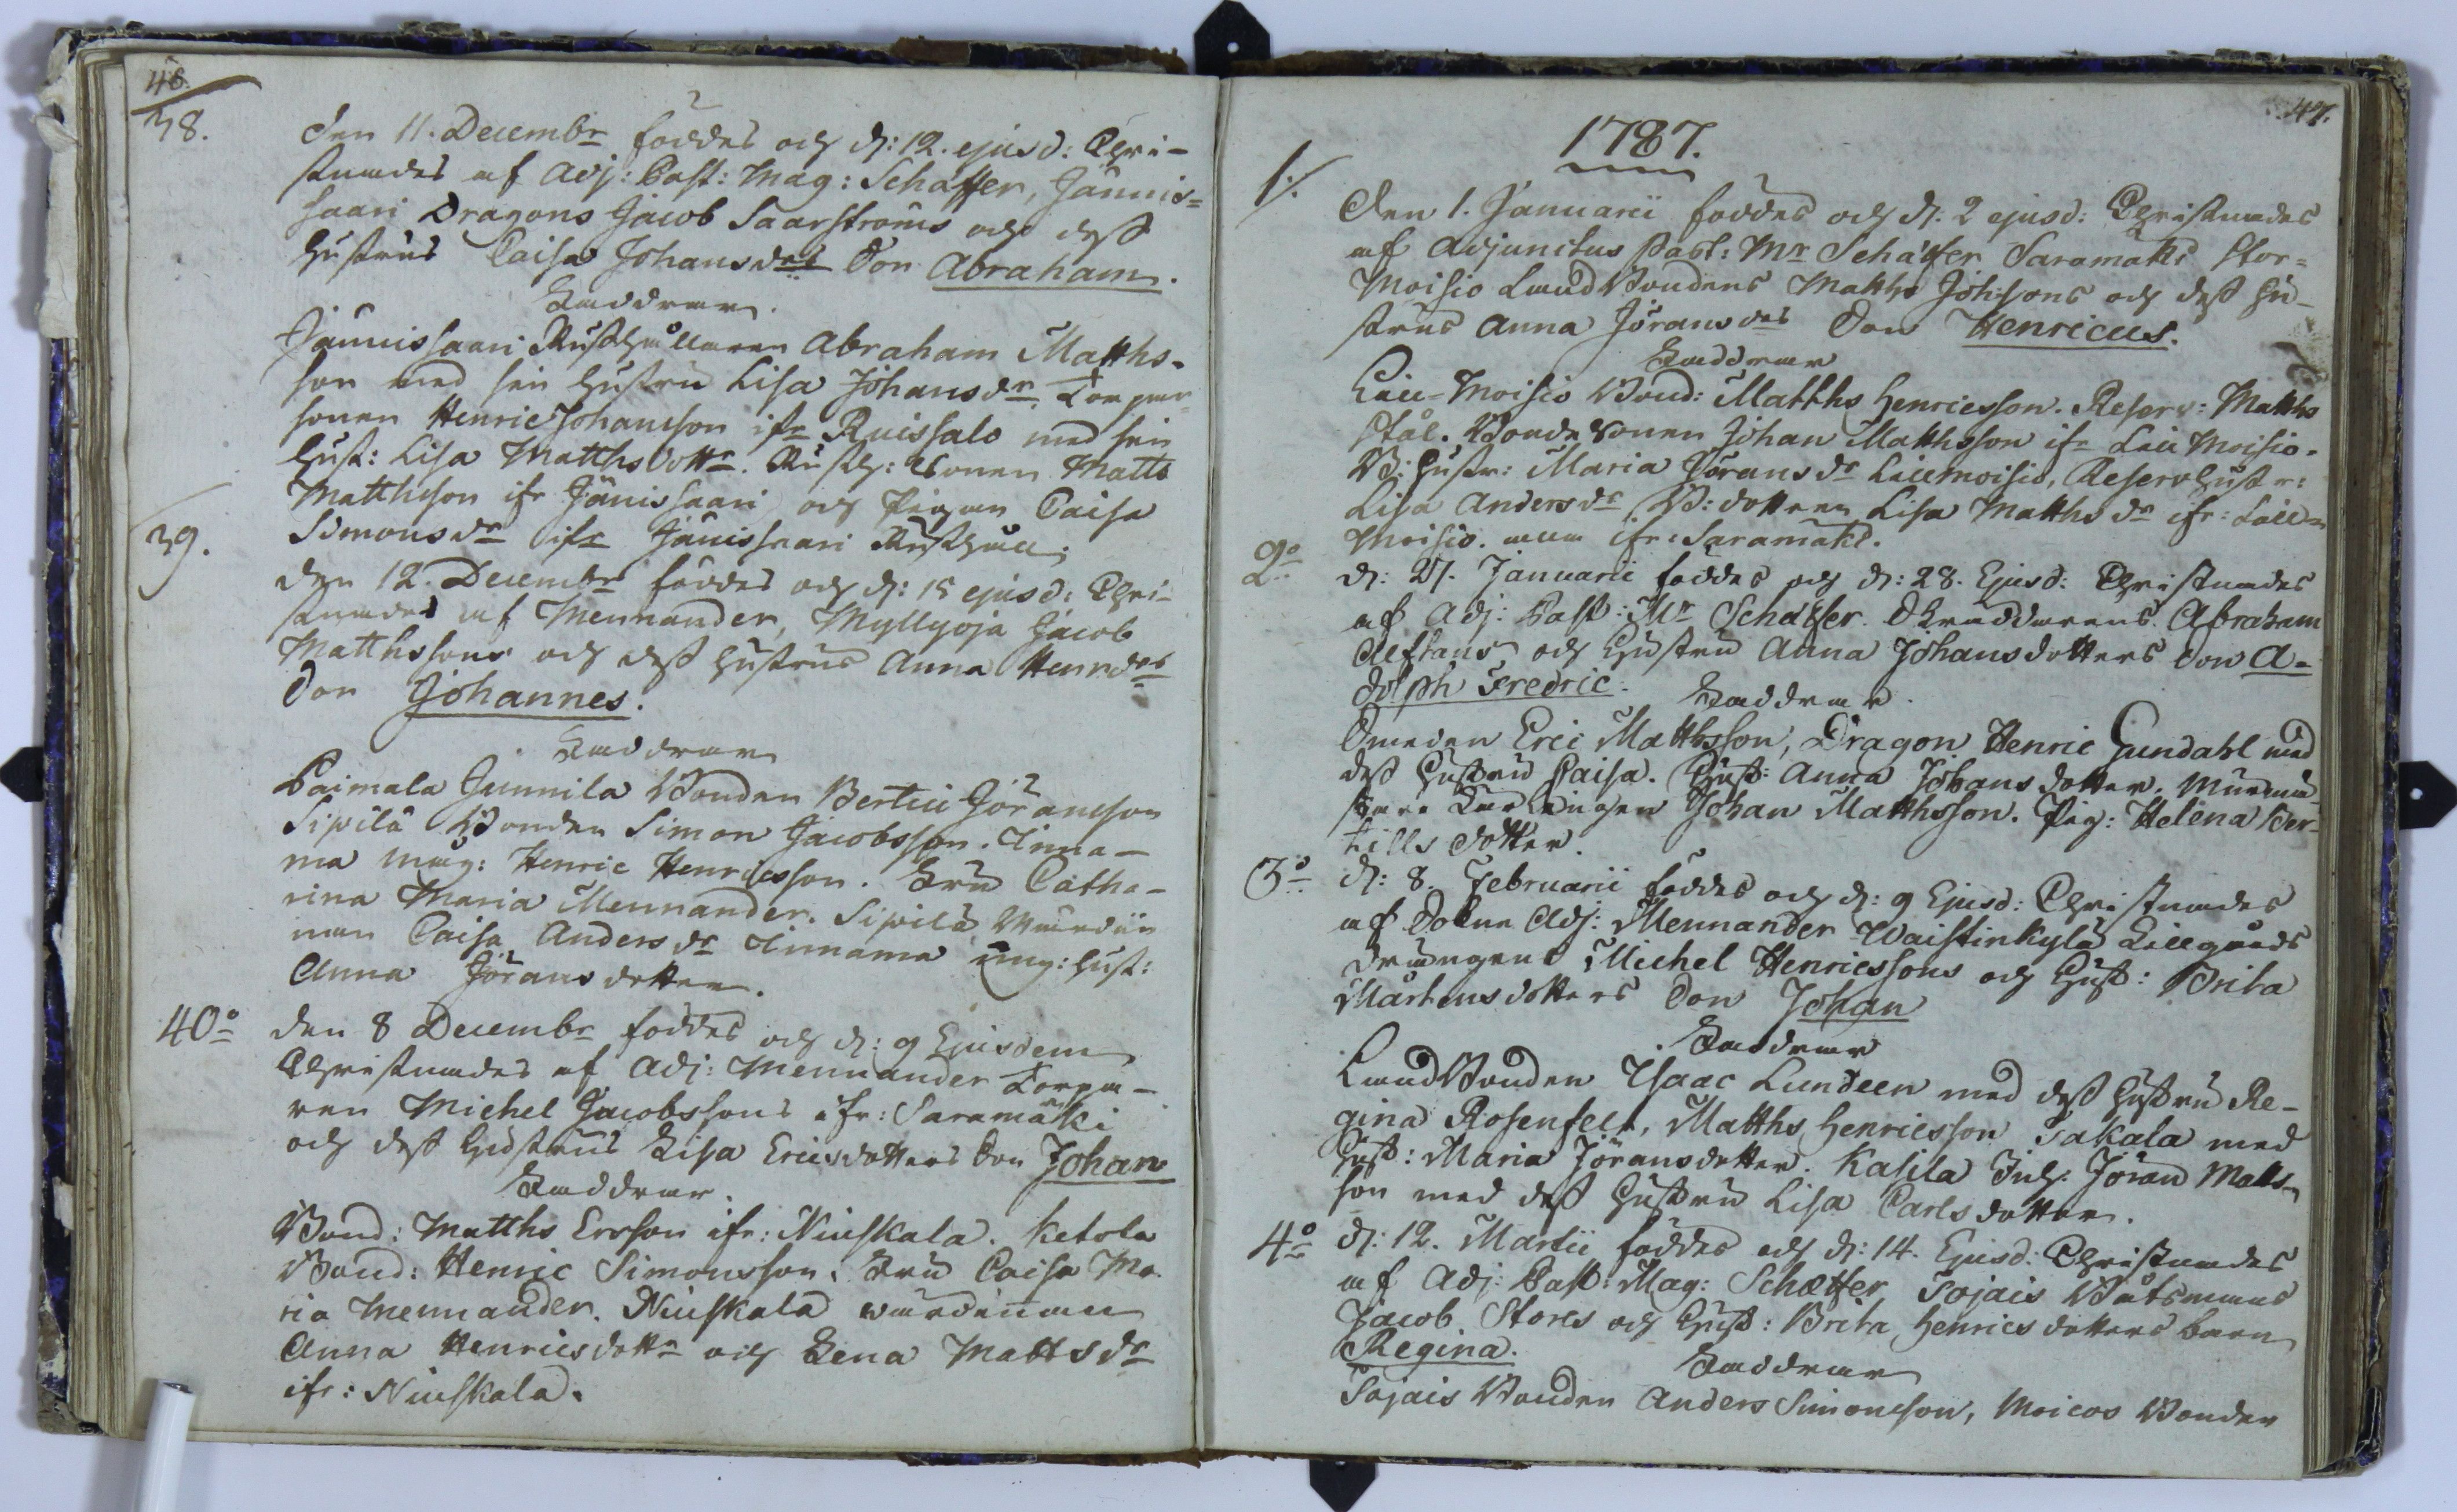 46.
38.
den 11. Decembr föddes och d: 12. ejusd: Chri-
stnades af Adj: Past: Mag: Schäffer, Jännis-
saari Dragons Jacob Saarströms och dess
hustrus Caisa Johansdrs Son Abraham.
Faddrar.
Jännissaari Rusthållaren Abraham Matths-
son med sin hustru Lisa Johansdr. Torpar
sonen Henric Johansson ifr Ruissalo med sin
Hust: Lisa Matthsdottr. Rusth: Sonen Matts
Matthsson ifr Jänissaari och Pigan Caisa
Simonsdr ifr Jänissaari Rusthåll.
39.
den 12. Decembr föddes och d: 15 ejusd: Chri-
stnades af Mennander, Myllyoja Jacob
Matthssons och dess hustrus Anna Henrdrs
Son Johannes.
Faddrar
Paimala Gunnila Bonden Bertil Jöransson
Sipilä Bonden Simon Jacobsson. Tinna-
ma måg: Henric Henricsson. Fru Catha-
rina Maria Mennander. Sipilä Värdin
nan Caisa Andersdr Tinnama mög: Hust:
Anna Jöransdotter.
40o
den 8 Decembr föddes och d: 9 Ejusdem
Christnades af Adj: Mennander Torpa-
ren Michel Jacobssons ifr: Saramäki
och dess Hustrus Lisa Ericsdotters Son Johan
Faddrar.
Bond: Matths Ersson ifr: Niuskala. Ketola
Bond: Henric Simonsson. Fru Caisa Ma-
ria Mennander. Niuskala värdinnan
Anna Henricsdottr och Lena Mattsdr
ifr: Niuskala.
47.
1787.
1.
Den 1. Januarii föddes och d. 2 ejusd: Christnades
af Adjunctus Past: Mr Schäffer Saramäki Stor-
Moisio Landbondens Matths Johssons och dess Hu-
strus Anna Jöransdrs Son Henricus.
Faddrar
Lill-Moisio Bond: Matths Henricsson. Reserv: Matths
Stål. Bonde Sonen Johan Matthsson ifr Lill Moisio.
B: Hustr: Maria Jöransdr Lillmoisio, Reserv Hustr:
Lisa Andersdr B: dottren Lisa Matthsdr ifr: Lill-
Moisio. ifr: Saramäki.
2o
d: 27. Januarii föddes och d: 28. Ejusd: Christnades
af Adj: Past: Mr Schäffer. Skräddarens Abraham
Alftans och Hustru Anna Johansdotters Son A-
dolph Fredric.
Faddrar.
Smeden Eric Matthsson, Dragon Henric Gundahl med
dess Hustru Caisa. Hust: Anna Johansdotter.
Johan Matthsson. Pig: Helena Ber-
tills dotter.
3o
d: 8. Februarii föddes och d: 9 Ejusd: Christnades
af Sokne Adj: Mennander Waistinkylä Lillgårds
drängens Michel Henricssons och Hust: Brita
Mårtensdotters Son Johan
Faddrar
Landbonden Isaac Lundeen med dess Hustru Re-
gina Rosenfelt, Matths Henricsson Takala med
Hust: Maria Jöransdotter. Kasila Inh: Jöran Matts-
son med dess Hustru Lisa Carlsdotter.
4o
d: 12. Martii föddes och d: 14. Ejusd: Christnades
af Adj: Past: Mag: Schæffer Tojais Båtsmans
Jacob Stores och Hust: Brita Henricsdotters barn
Regina.
Faddrar
Tojais Bonden Anders Simonsson, Moicos Bonden